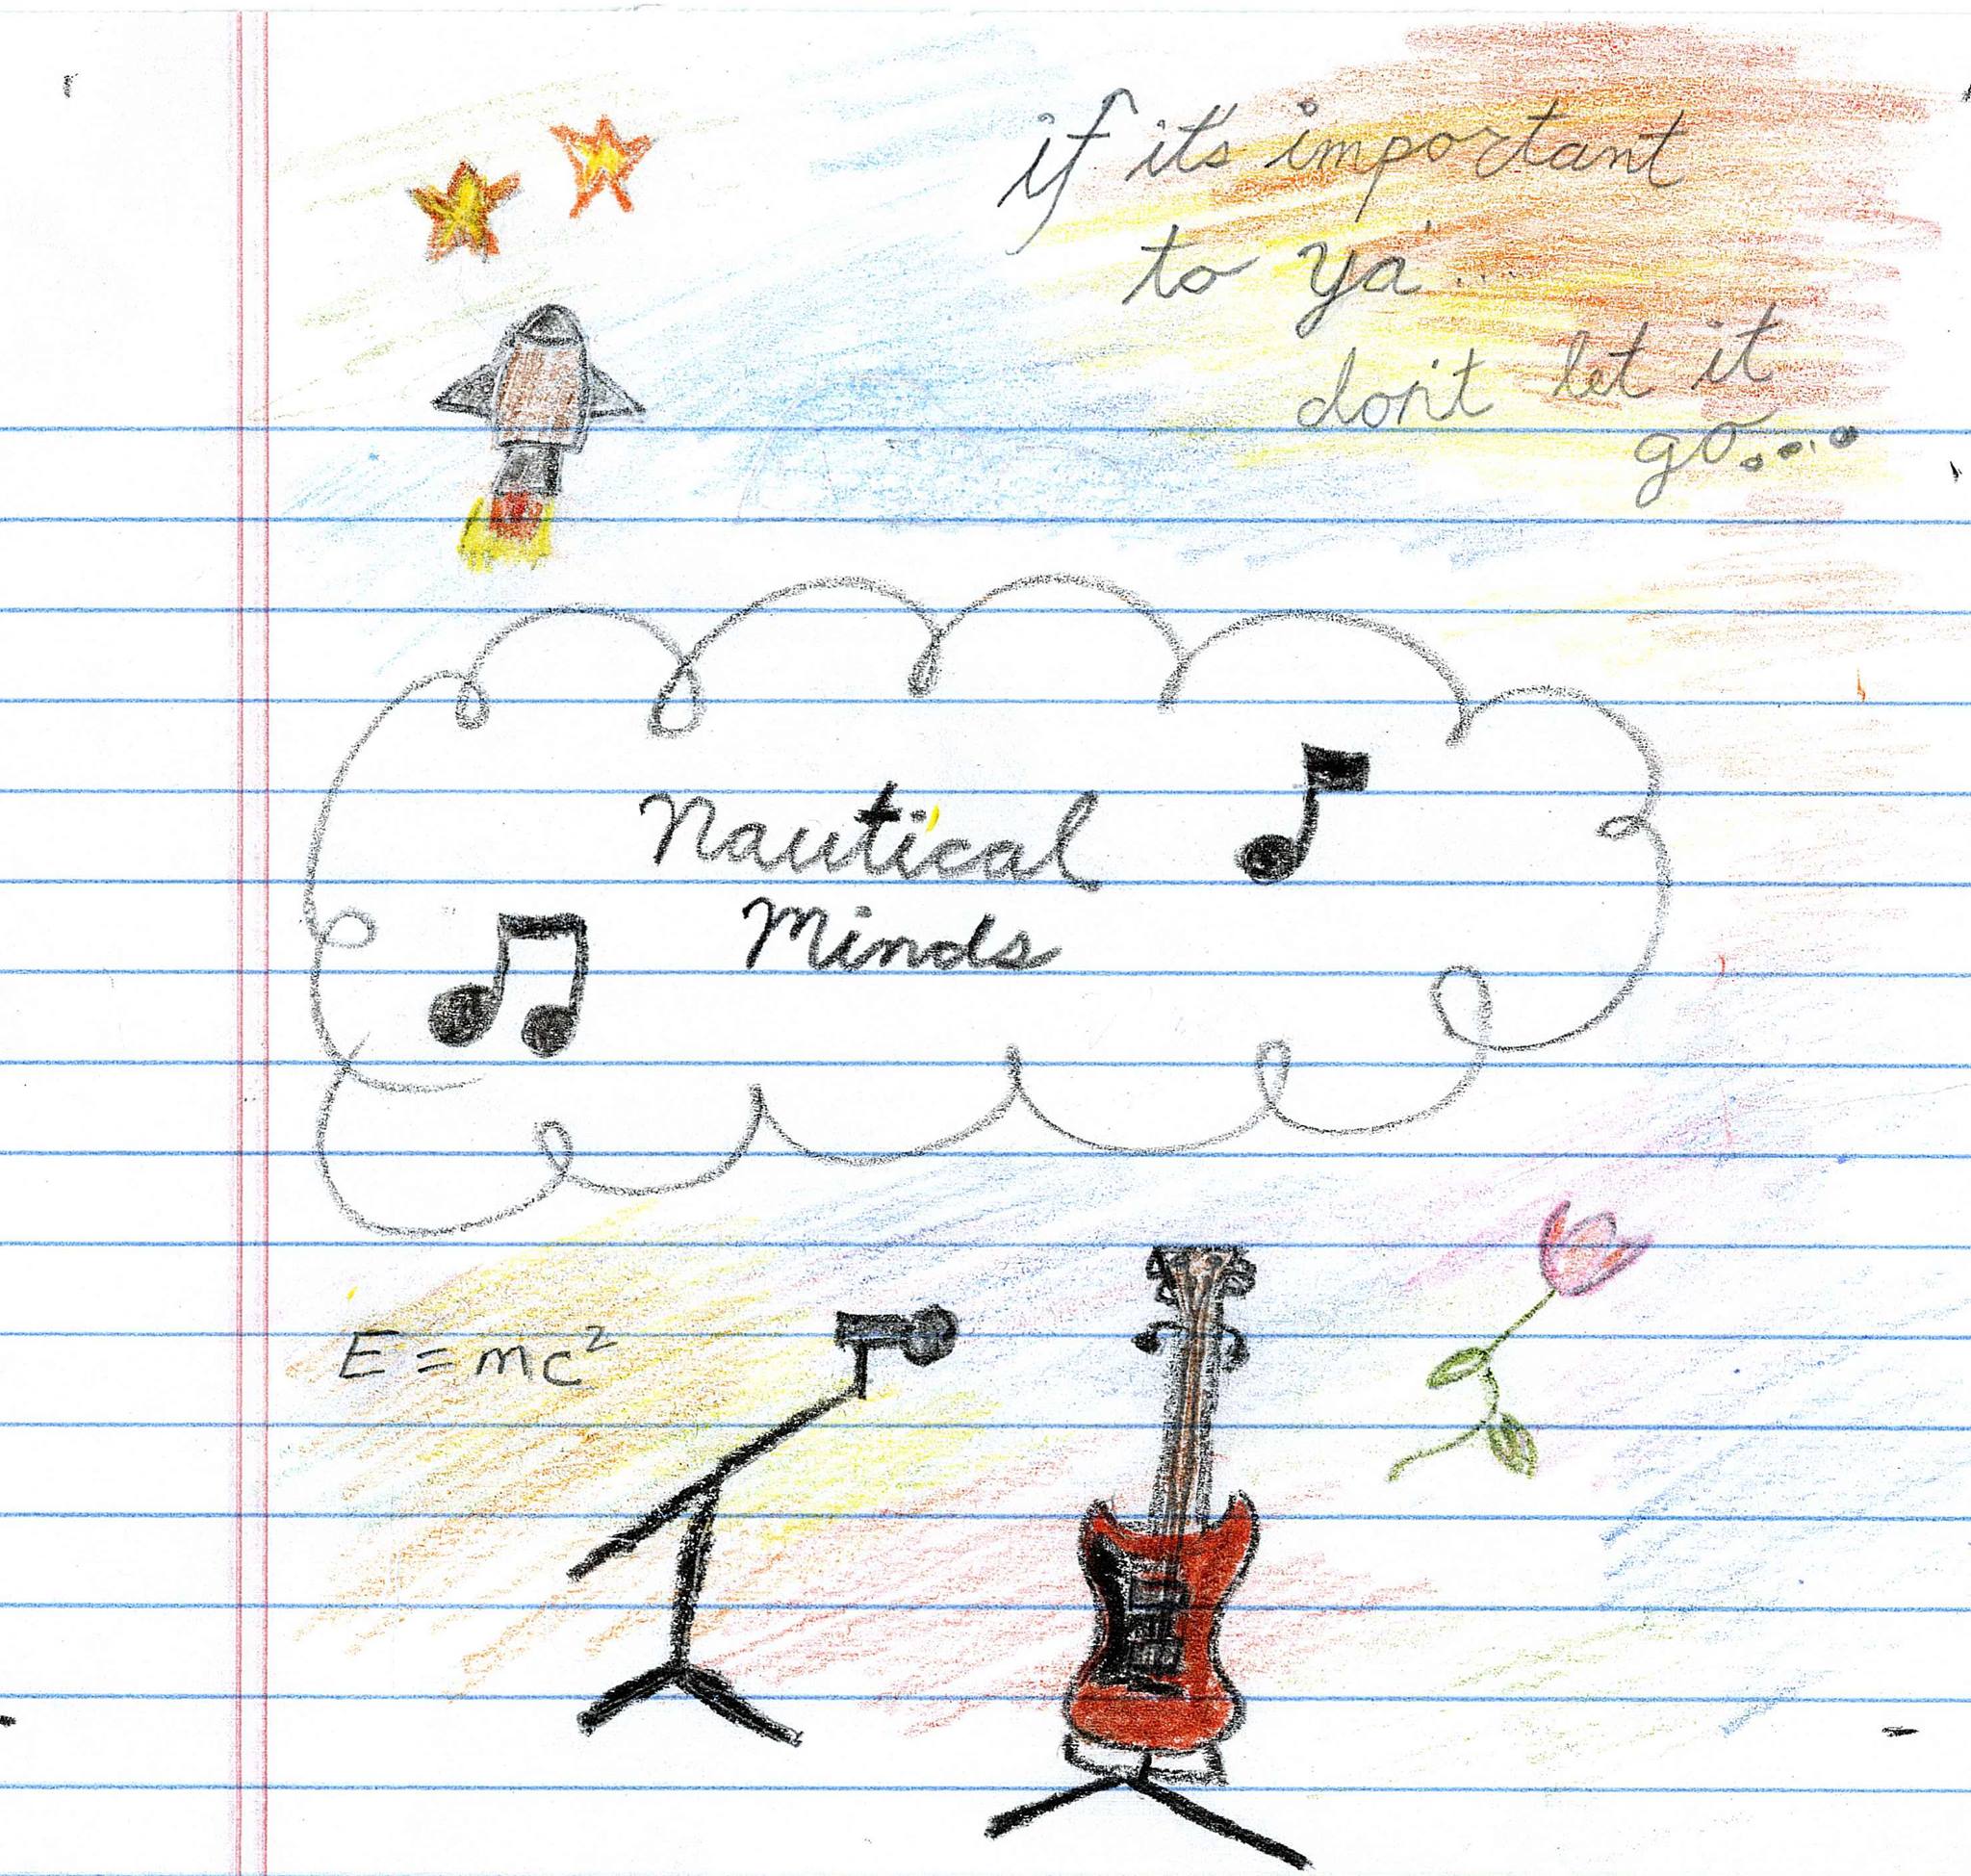 if it's important
to ya...
don't let it
go....
Nautical
Minds
E = mc²